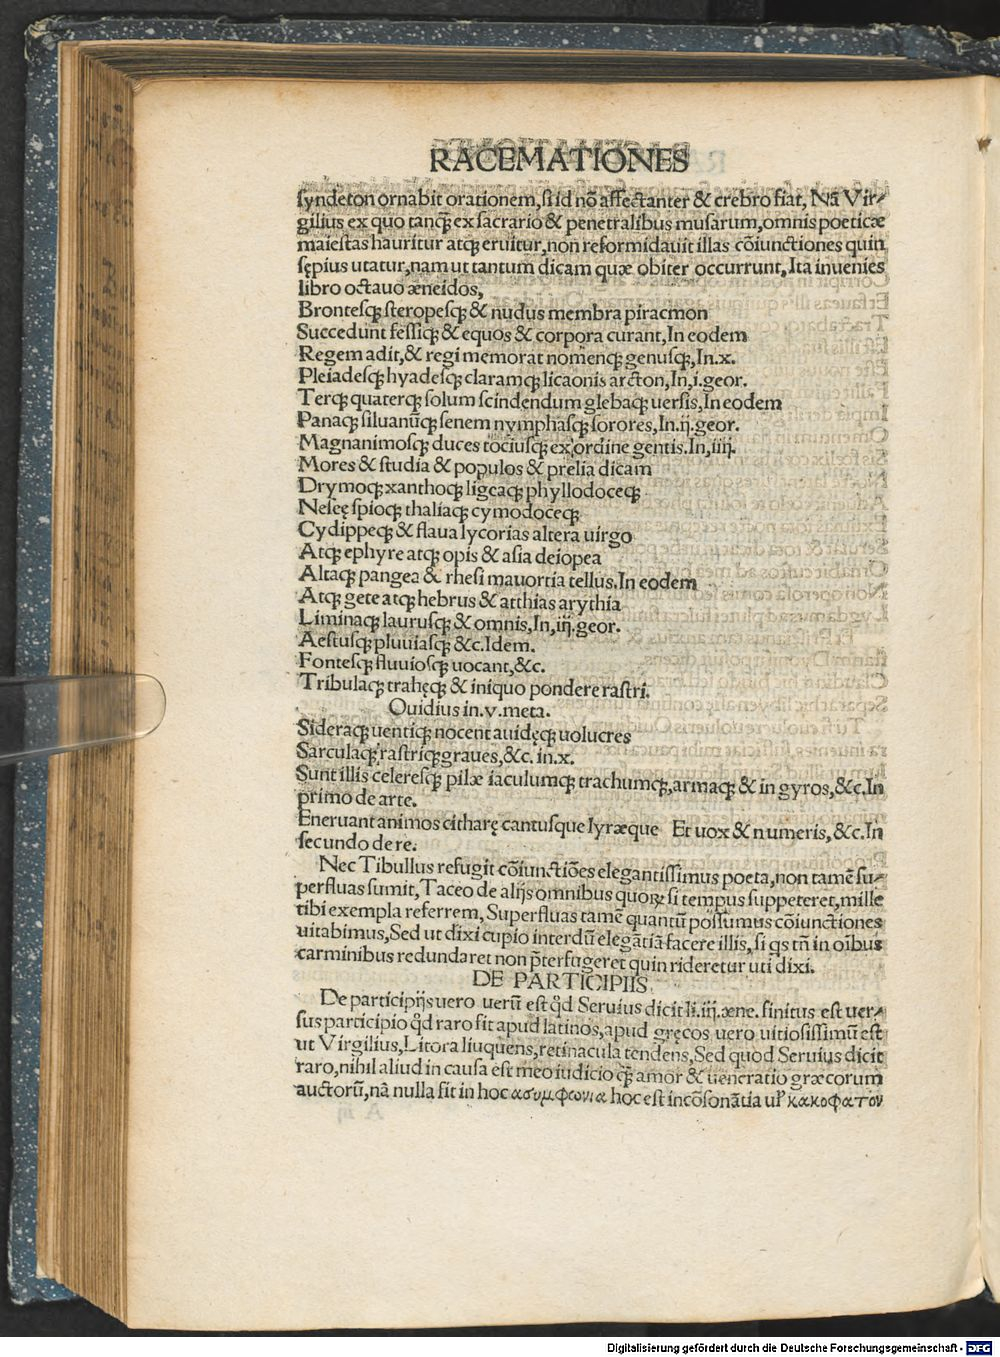 RACEMATIONES
syndeton ornabit orationem, si id nō affectanter & crebro fiat, Nā Vir⸗
gilius ex quo tanq̃ ex sacrario & penetralibus musarum, omnis poeticæ
maiestas hauritur atq; eruitur, non reformidauit illas cōiunctiones quin
sępius utatur, nam ut tantum dicam quæ obiter occurrunt, Ita inuenies
libro octauo æneidos,
Brontesq; steropesq; & nudus membra piracmon
Succedunt fessiq; & equos & corpora curant, In eodem
Regem adit, & regi memorat nomenq; genusq;, In .x.
Pleiadesq; hyadesq; claramq; licaonis arcton, In, i. geor.
Terq; quaterq; solum scindendum glebaq; uersis, In eodem
Panaq; siluanūq; senem nymphasq; sorores, In .ij. geor.
Magnanimosq; duces tociusq; ex ordine gentis. In, iiij.
Mores & studia & populos & prelia dicam
Drymoq; xanthoq; ligeaq; phyllodoceq;
Neseę spioq; thaliaq; cymodoceq;
Cydippeq; & flaua lycorias altera uirgo
Atq; ephyre atq; opis & asia deiopea
Altaq; pangea & rhesi mauortia tellus. In eodem
Atq; gete atq; hebrus & atthias arythia
Liminaq; laurusq; & omnis, In, iij. geor.
Aestusq; pluuiasq; &c. Idem.
Fontesq; fluuiosq; uocant, &c.
Tribulaq; trahęq; & iniquo pondere rastri.
Ouidius in .v. meta.
Sideraq; uentiq; nocent auidęq; uolucres
Sarculaq; rastriq; graues, &c. in .x.
Sunt illis celeresq; pilæ iaculumq; trachumq;, armaq; & in gyros, &c. In
primo de arte.
Eneruant animos citharę cantusque lyræque Et uox & numeris, &c. In
secundo de re.
Nec Tibullus refugit cōiunctiōes elegantissimus poeta, non tamē su⸗
perfluas sumit, Taceo de alijs omnibus quoꝝ si tempus suppeteret, mille
tibi exempla referrem, Superfluas tamē quantū possumus cōiunctiones
uitabimus, Sed ut dixi cupio interdū elegātiā facere illis, si q̄s tñ in oībus
carminibus redundaret non p̄terfugeret quin rideretur uti dixi.
DE PARTICIPIIS.
De participijs uero uerū est q̊d Seruius dicit li. iij. æne. finitus est uer⸗
sus participio q̊d raro fit apud latinos, apud gręcos uero uitiosissimū est
ut Virgilius, Litora liuquens, retinacula tendens, Sed quod Seruius dicit
raro, nihil aliud in causa est meo iudicio q̃ amor & ueneratio græcorum
auctorū, nā nulla fit in hoc ασυμφωνια hoc est incōsonātia ul' κακοφατον
Digitalisierung gefördert durch die Deutsche Forschungsgemeinschaft - DFG